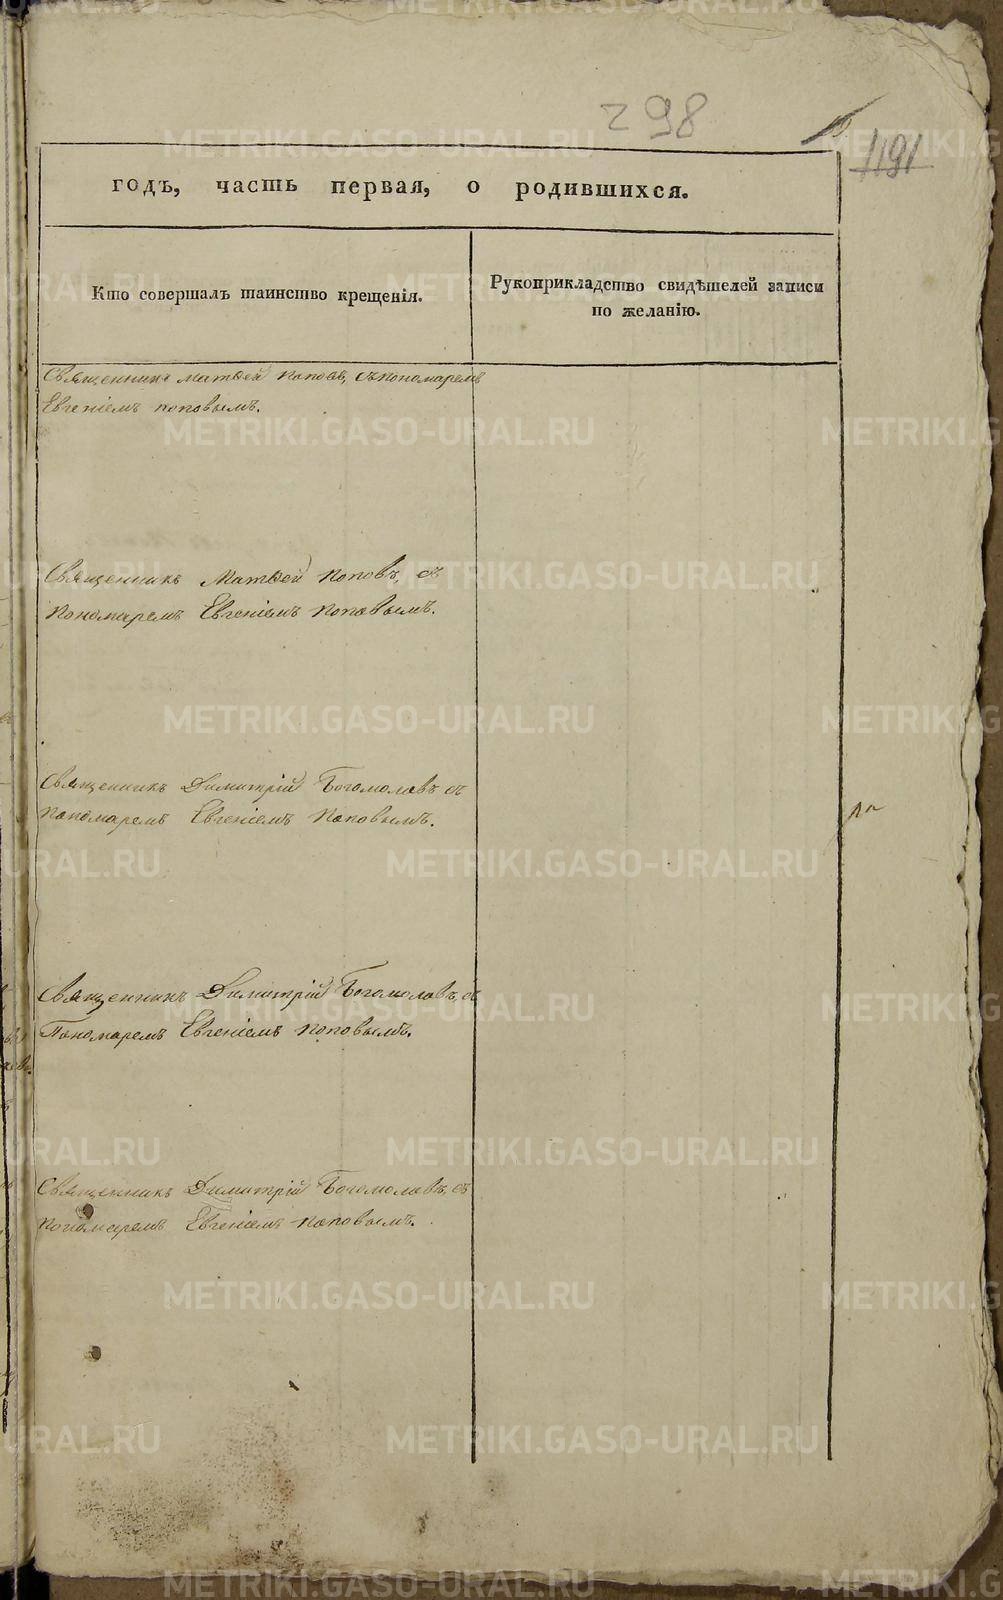 298
1191
годъ, часть первая, о родившихся.
Кто совершалъ таинство крещенія.
Рукоприкладство свидѣтелей записи
по желанію.
Священникъ Матѳей Поповъ, съ пономаремъ
Евгеніемъ Поповымъ.
Священникъ Матѳей Поповъ, съ
Пономаремъ Евгеніемъ Поповымъ.
Священникъ Димитрій Богомоловъ съ
пономаремъ Евгеніемъ Поповымъ.
Священникъ Димитрій Богомоловъ, съ
Пономаремъ Евгеніемъ Поповымъ.
Священникъ Димитрій Богомоловъ, съ
пономаремъ Евгеніемъ Поповымъ.
METRIKI.GASO-URAL.RU